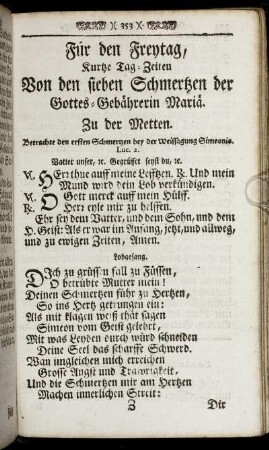 353
Für den Freytag,
Kurtze Tag-Zeiten
Von den sieben Schmertzen der
Gottes-Gebährerin Mariä.
Zu der Metten.
Betrachte den ersten Schmertzen bey der Weissagung Simeonis.
Luc. 2.
Vatter unser, ꝛc. Gegrüsset seyst du, ꝛc.
℣. HErr thue auff meine Lefftzen. ℟. Und mein
Mund wird dein Lob verkündigen.
℣. O Gott merck auff mein Hülff.
℟. HErr eyle mir zu helffen.
Ehr sey dem Vatter, und dem Sohn, und dem
H. Geist: Als er war im Anfang, jetzt, und allweg,
und zu ewigen Zeiten, Amen.
Lobgesang.
DIch zu grüssen fall zu Füssen,
O betrübte Mutter mein!
Deinen Schmertzen führ zu Hertzen,
So ins Hertz getrungen ein:
Als mit klagen weiß that sagen
Simeon vom Geist gelehrt,
Mit was Leyden durch würd schneiden
Deine Seel das scharffe Schwerd.
Wan ungleichen mich erreichen
Grosse Angst und Trawrigkeit,
Und die Schmertzen mir am Hertzen
Machen innerlichen Streit:
Z Dir